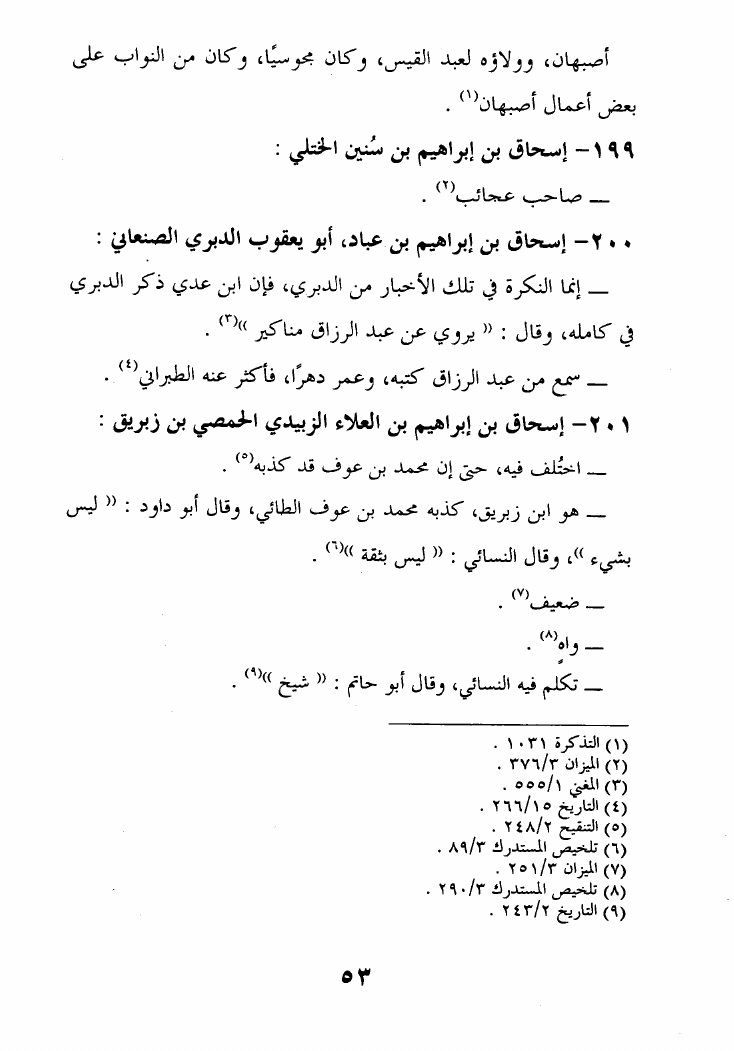 أصبهان، وولاؤه لعبد القيس، وكان مجوسيًّا، وكان من النواب على
بعض أعمال أصبهان(١) .
١٩٩- إسحاق بن إبراهيم بن سُنين الختلي :
ـ صاحب عجائب(٢) .
٢٠٠- إسحاق بن إبراهيم بن عباد، أبو يعقوب الدبري الصنعاني :
ـ إنما النكرة في تلك الأخبار من الدبري، فإن ابن عدي ذكر الدبري
في كامله، وقال : (( يروي عن عبد الرزاق مناكير ))(٣) .
ـ سمع من عبد الرزاق كتبه، وعمر دهرًا، فأكثر عنه الطبراني(٤) .
٢٠١- إسحاق بن إبراهيم بن العلاء الزبيدي الحمصي بن زبريق :
ـ اختُلف فيه، حتى إن محمد بن عوف قد كذبه(٥) .
ـ هو ابن زبريق، كذبه محمد بن عوف الطائي، وقال أبو داود : (( ليس
بشيء ))، وقال النسائي : (( ليس بثقة ))(٦) .
ـ ضعيف(٧) .
ـ واهٍ(٨) .
ـ تكلم فيه النسائي، وقال أبو حاتم : (( شيخ ))(٩) .
(١) التذكرة ١٠٣١ .
(٢) الميزان ٣٧٦/٣ .
(٣) المغني ٥٥٥/١ .
(٤) التاريخ ٢٦٦/١٥ .
(٥) التنقيح ٢٤٨/٢ .
(٦) تلخيص المستدرك ٨٩/٣ .
(٧) الميزان ٢٥١/٣ .
(٨) تلخيص المستدرك ٢٩٠/٣ .
(٩) التاريخ ٢٤٣/٢ .
٥٣